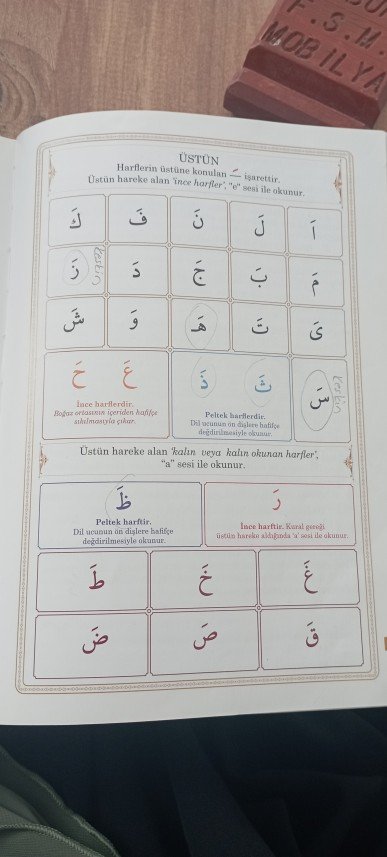 F.S.M
MOBİLYA
ÜSTÜN
Harflerin üstüne konulan  َ  işarettir.
Üstün hareke alan 'ince harfler', "e" sesi ile okunur.
اَ لَ نَ فَ كَ
مَ بَ جَ دَ زَ
keskin
ىَ تَ هَ وَ شَ
سَ
keskin
ثَ ذَ
Peltek harflerdir.
Dil ucunun ön dişlere hafifçe
değdirilmesiyle okunur.
عَ حَ
İnce harflerdir.
Boğaz ortasının içeriden hafifçe
sıkılmasıyla çıkar.
Üstün hareke alan 'kalın veya kalın okunan harfler',
"a" sesi ile okunur.
رَ
İnce harftir. Kural gereği
üstün hareke aldığında 'a' sesi ile okunur.
ظَ
Peltek harftir.
Dil ucunun ön dişlere hafifçe
değdirilmesiyle okunur.
غَ خَ طَ
قَ صَ ضَ